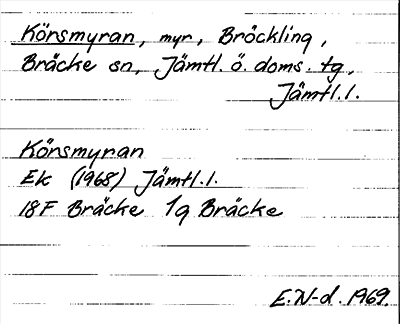 Körsmyran, myr, Bröckling,
Bräcke sn, Jämtl. ö. doms. tg,
Jämtl. l.
Körsmyran
Ek (1968) Jämtl. l.
18F Bräcke 1g Bräcke
E. N-d. 1969.